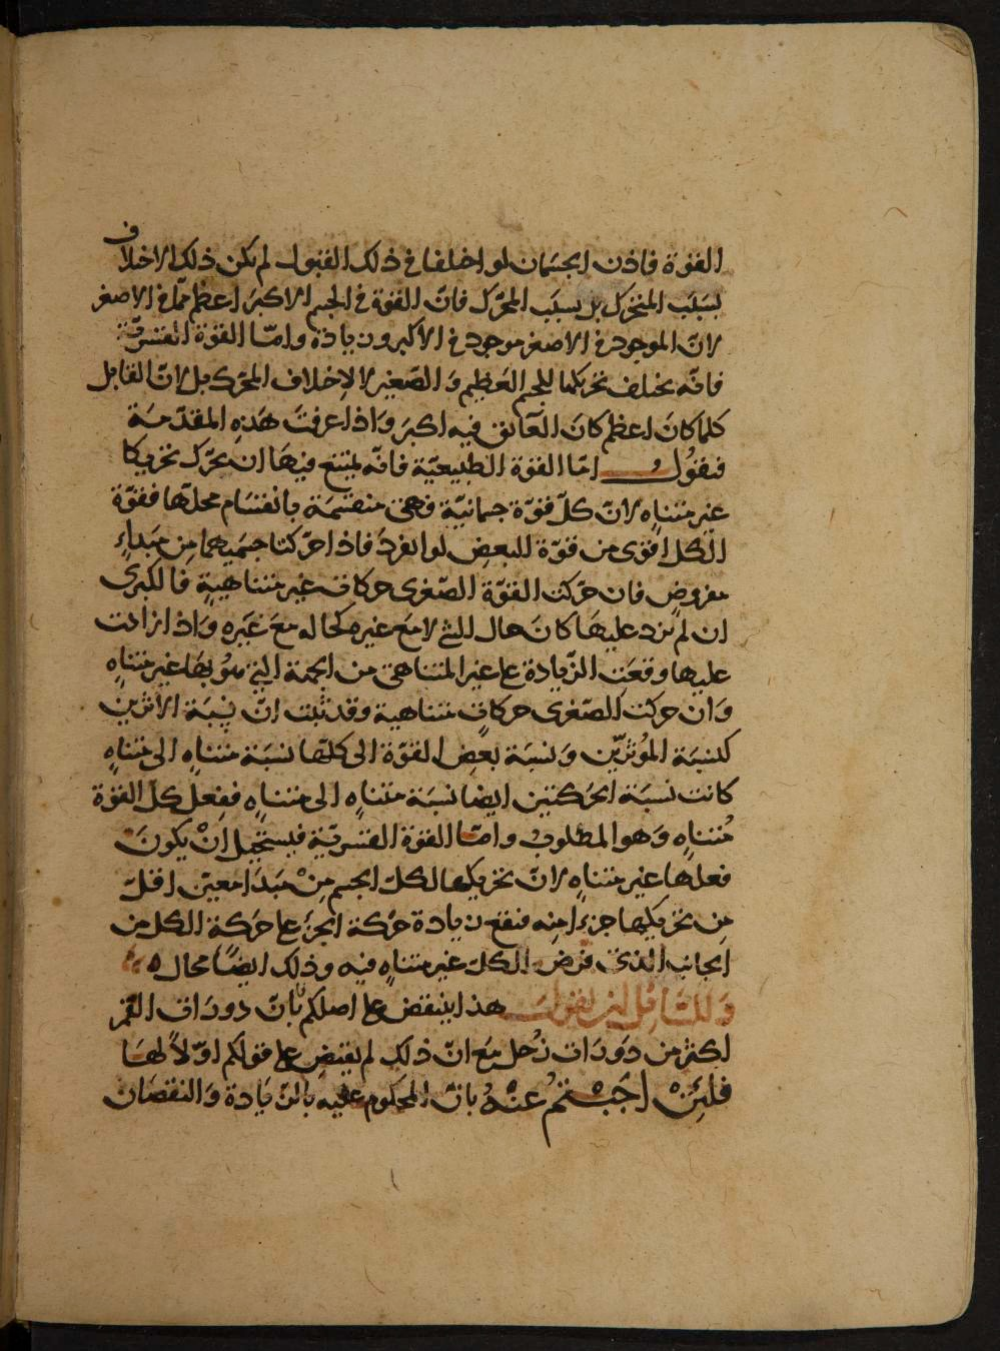 القوة فاذن الجسمان لو اختلفا في ذلك القبول لم يكن ذلك الاختلاف
بسبب المتحرك بل بسبب المحرّك فانّ القوة في الجسم الاكبر اعظم ممّا في الاصغر
لانّ الموجود في الاصغر موجود في الاكبر وزيادة وامّا القوة القسريّة
فانّه يختلف تحريكها للجسم العظيم وَالصّغير لا لاختلاف المحرّك بل لانّ القابل
كلما كانَ اعظم كانَ العآئق فيه اكبرَ وَاذا عرفتَ هَذِهِ المقدّمَة
فنقولُ امّا القوة الطبيعيّة فانّه يمتنع فيهَا ان تحرّك تحريكا
غير متناهٍ لانّ كلّ قوّة جسمانيّة فهيَ منقسمَة بانقسَام محلّها فقوّة
الكل اقوى من قوّة البعضِ لو انفردَ فاذا حرّكتا جسمَيهما مِن مَبداءٍ
مفروضٍ فان حرّكت القوّة الصّغرى حركات غير متناهيةٍ فالكبرى
ان لم تزد عليهَا كانَ حال الشئ لا مَعَ غيره كحاله معَ غيره وَاذا زادت
عليها وقعَت الزّيادة على غير المتناهي من الجهة التي هو بهَا غير متناهٍ
وَان حركت الصّغرى حركاتٍ متناهية وقد ثبت انّ نسبَة الاثرين
كنسبَة المُوثرّين وَنسبَة بعضِ القوّة الى كلّها نسبَة متناهٍ الى متناهٍ
كانت نسبَة الحركتين ايضا نسبَة متناهٍ الى متناهٍ ففعل كلّ القوّة
مُتناهٍ وَهو المطلوب وامّا القوة القسريّة فيستحيل انْ يكونَ
فعلها غير متناهٍ لانّ تحريكها لكلّ الجسم مِنْ مَبدَا معيّن اقلّ
مِن تحريكها جزءًا مِنه فتقع زيادة حرَكة الجزء على حرَكة الكل من
الجانب الذي فرض الكلّ غير متناهٍ فيه وذلك ايضًا محال ه
وَللسَائل ان يقول هذا ينتقض على اصلكم بانّ دورَات القمر
اكثر من دَورَات زُحل مَعَ انّ ذلك لم يقتضِ على قولكم اوّلاً لهَا
فلئِنْ اَجَبْتمُ عنْهُ بانّ المحكوم عليه بالزّيَادة وَالنقصَان